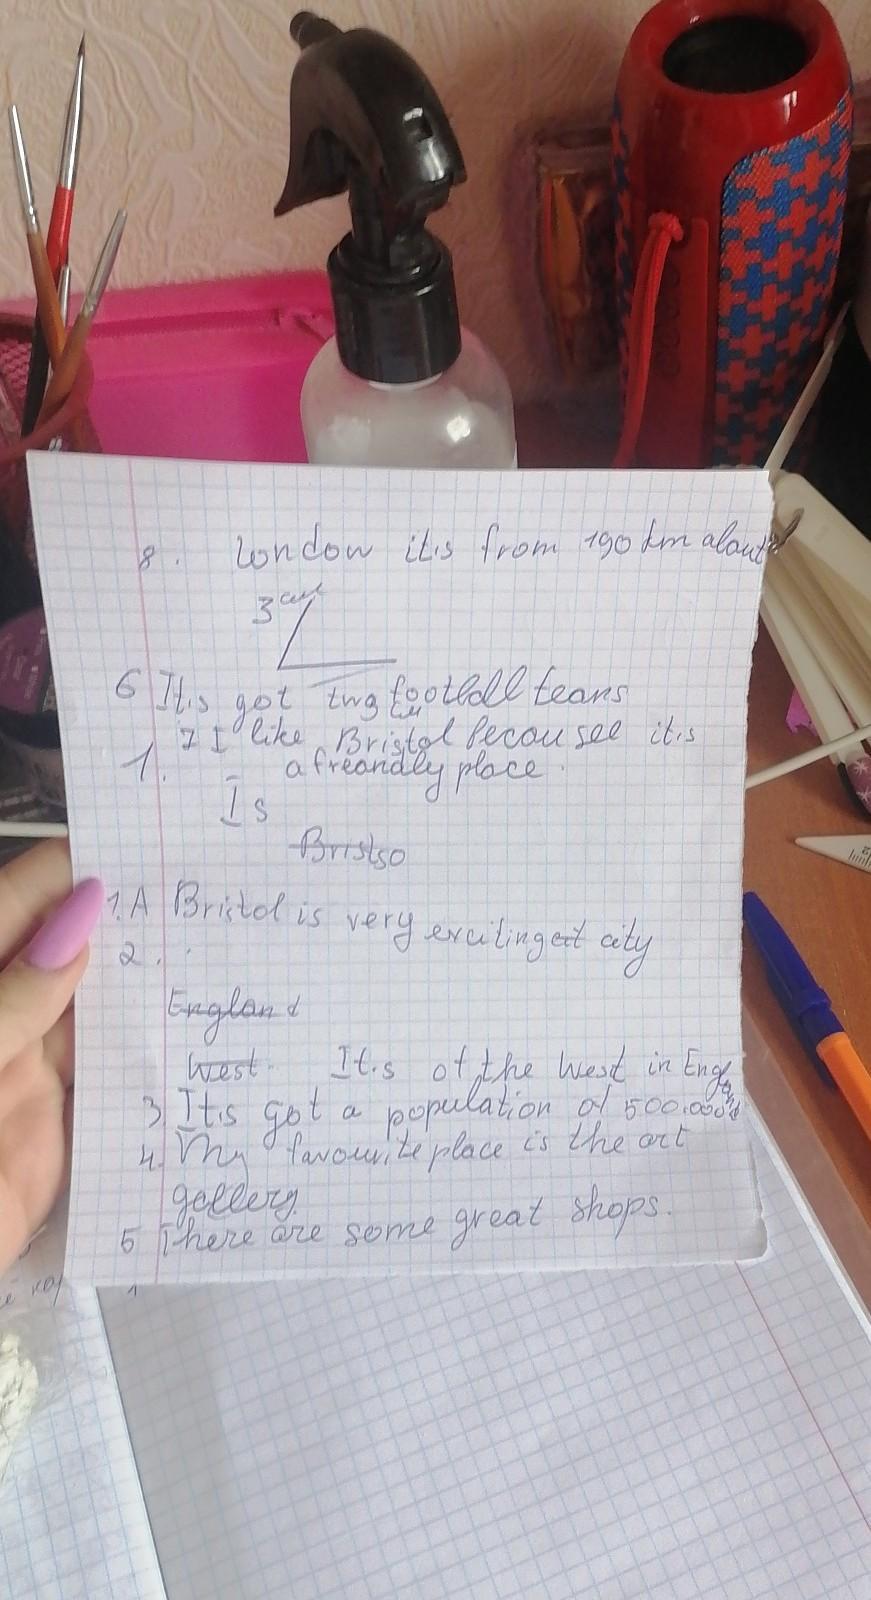 8. London it.s from 190 km about
3 см
6 It.s got two football teans
7 I like Bristol Becou see it.s
1. a freandly place.
Is
Bristso
1.A Bristol is very exciting et city
2.
England
West. It.s of the West in England
3 It.s got a population of 500.000
4. My favourite place is the art
gallery.
5 There are some great shops.